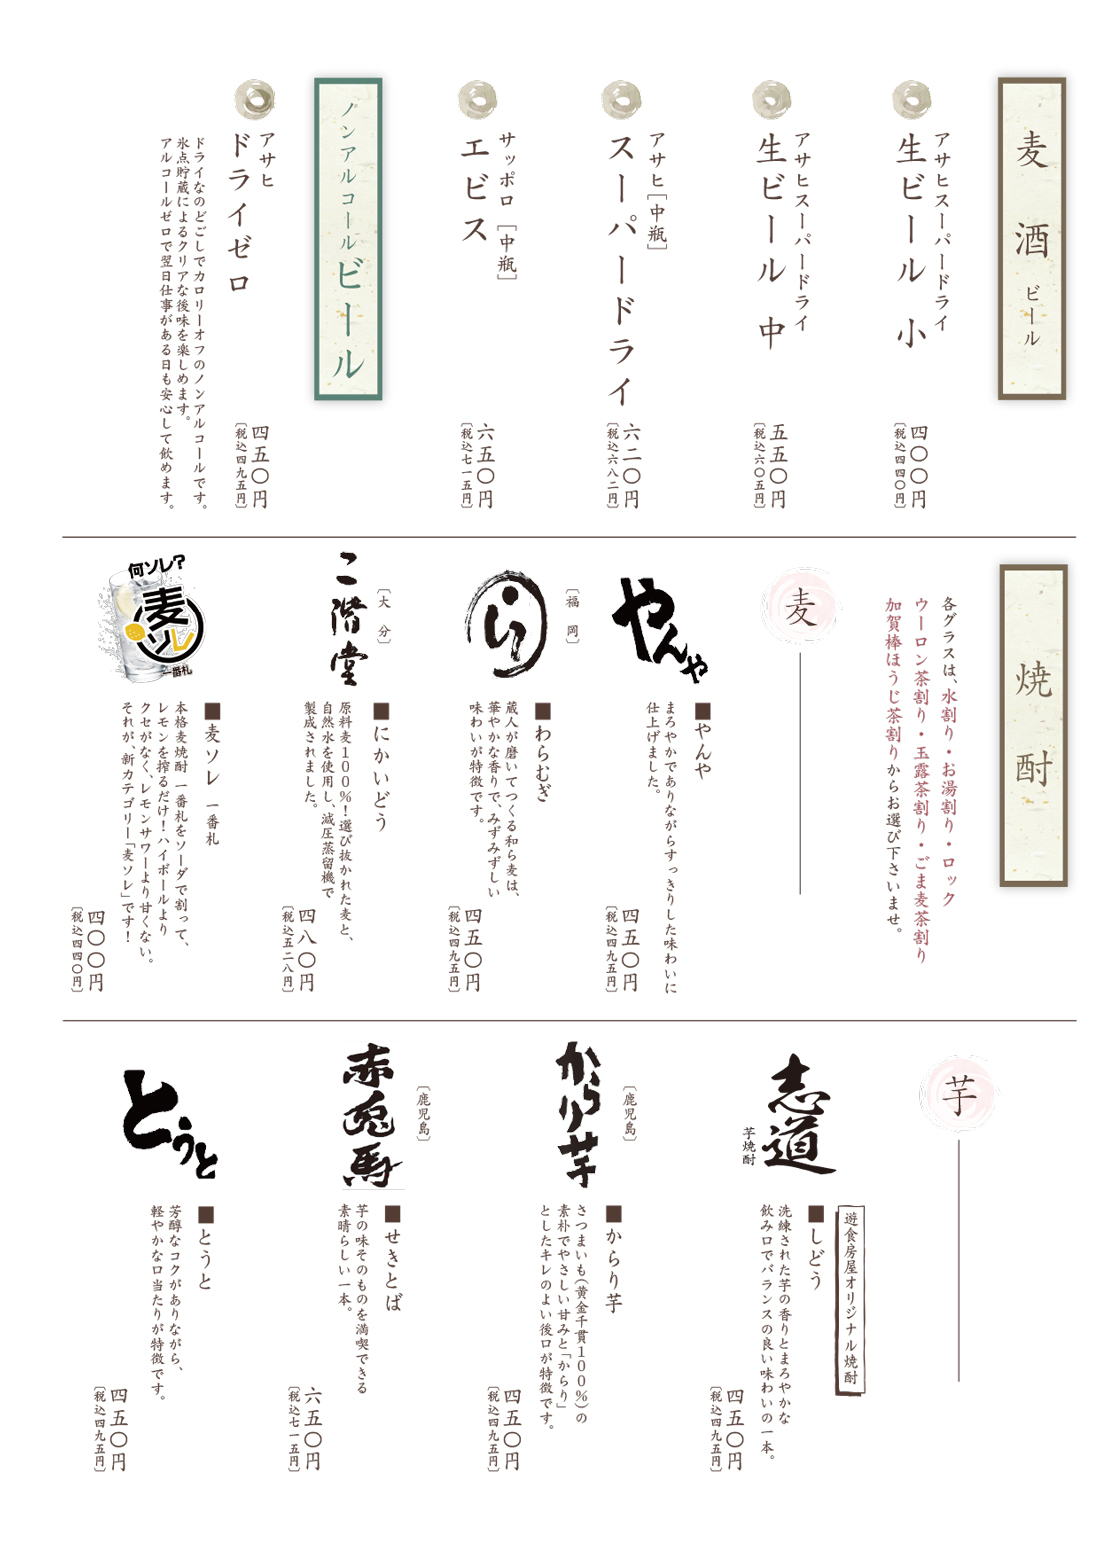 麦酒 ビール
アサヒスーパードライ
生ビール 小
四〇〇円
［税込四四〇円］
アサヒスーパードライ
生ビール 中
五五〇円
［税込六〇五円］
アサヒ［中瓶］
スーパードライ
六二〇円
［税込六八二円］
サッポロ［中瓶］
エビス
六五〇円
［税込七一五円］
ノンアルコールビール
アサヒ
ドライゼロ
ドライなのどごしでカロリーオフのノンアルコールです。
氷点貯蔵によるクリアな後味を楽しめます。
アルコールゼロで翌日仕事がある日も安心して飲めます。
四五〇円
［税込四九五円］
焼酎
各グラスは、水割り・お湯割り・ロック
ウーロン茶割り・玉露茶割り・ごま麦茶割り
加賀棒ほうじ茶割りからお選び下さいませ。
麦
やんや
■やんや
まろやかでありながらすっきりした味わいに
仕上げました。
四五〇円
［税込四九五円］
［福岡］
■わらむぎ
蔵人が磨いてつくる和ら麦は、
華やかな香りで、みずみずしい
味わいが特徴です。
四五〇円
［税込四九五円］
［大分］
二階堂
■にかいどう
原料麦１００％！選び抜かれた麦と、
自然水を使用し、減圧蒸留機で
製成されました。
四八〇円
［税込五二八円］
何ソレ？
麦ソレ
一番札
■麦ソレ 一番札
本格麦焼酎 一番札をソーダで割って、
レモンを搾るだけ！ハイボールより
クセがなく、レモンサワーより甘くない。
それが、新カテゴリー「麦ソレ」です！
四〇〇円
［税込四四〇円］
芋
遊食房屋オリジナル焼酎
志道
芋焼酎
■しどう
洗練された芋の香りとまろやかな
飲み口でバランスの良い味わいの一本。
四五〇円
［税込四九五円］
［鹿児島］
からり芋
■からり芋
さつまいも（黄金千貫１００％）の
素朴でやさしい甘みと「からり」
としたキレのよい後口が特徴です。
四五〇円
［税込四九五円］
［鹿児島］
赤兎馬
■せきとば
芋の味そのものを満喫できる
素晴らしい一本。
六五〇円
［税込七一五円］
とうと
■とうと
芳醇なコクがありながら、
軽やかな口当たりが特徴です。
四五〇円
［税込四九五円］